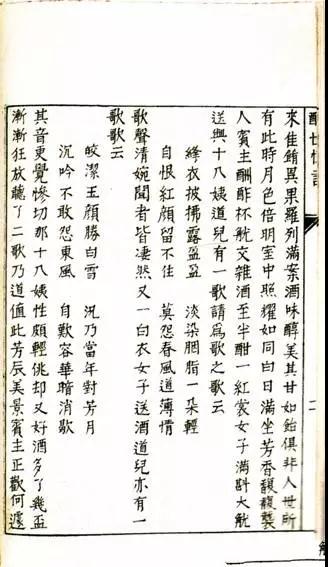 醒世恒言
二
來佳餚異果羅列滿案酒味醇美其甘如飴俱非人世所
有此時月色倍明室中照耀如同白日滿坐芳香馥馥襲
人賓主酬酢杯觥交雜酒至半酣一紅裳女子滿斟大觥
送與十八姨道兒有一歌請爲歌之歌云
絳衣披拂露盈盈　淡染胭脂一朶輕
自恨紅顏留不住　莫怨春風道薄情
歌聲清婉聞者皆凄然又一白衣女子送酒道兒亦有一
歌歌云
皎潔玉顏勝白雪　況乃當年對芳月
沉吟不敢怨東風　自歎容華暗消歇
其音更覺慘切那十八姨性頗輕佻却又好酒多了幾盃
漸漸狂放聽了二歌乃道值此芳辰美景賓主正歡何遽